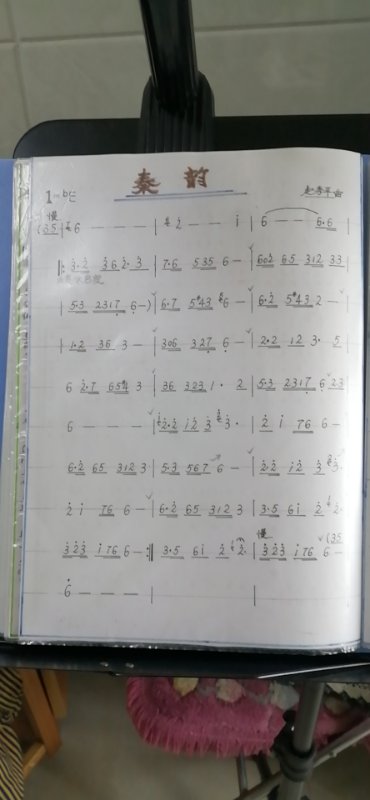 秦韵
1=bE
慢
(35 6 - - - | 2 - - - i | 6 - - 6·6 |
‖: 3·2 36 2·3 | 7·6 535 6 - | 602 65 312 33
| 5·3 2317 6 -) | 6·7 5#43 6 - | 6·2 5#43 2 - |
| 1·2 36 3 - | 306 327 6 - | 2·2 12 3· 5
6 2·7 65#4 3 | 36 323 1· 2 | 5·3 2317 6 23
6 - - - | 2·2 i2 3 3· | 2 i 76 6 - |
6·2 65 312 3 | 5·3 567 6 - | 2·2 i2 3 3·
2 i 76 6 - | 6·2 65 312 3 | 3·5 6i 2 2·
慢
323 i76 6 - :‖ 3·5 6i 2 2· | 323 i76 6 - (35
6 - - - | |